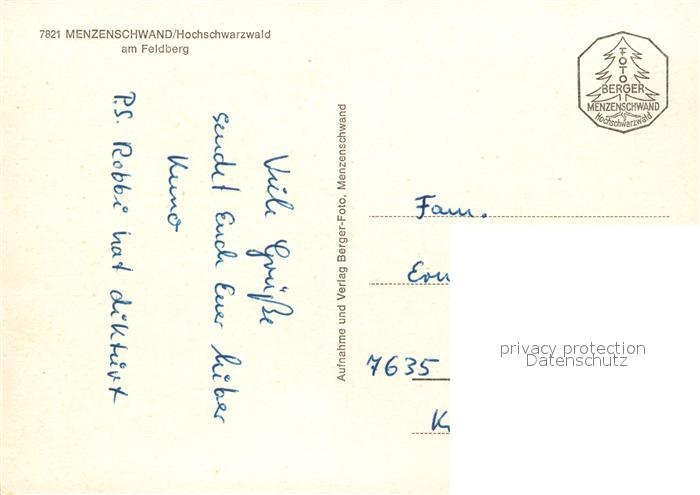 7821 MENZENSCHWAND/Hochschwarzwald
am Feldberg
FOTO
BERGER
MENZENSCHWAND
Hochschwarzwald
Viele Grüße
sendet Euch Euer lieber
Kuno
P.S. Robbi hat diktiert
Aufnahme und Verlag Berger-Foto, Menzenschwand
Fam.
7635
privacy protection
Datenschutz